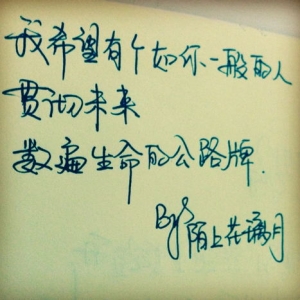 我希望有个如你一般的人
贯彻未来
数遍生命的公路牌.
By 陌上花满月